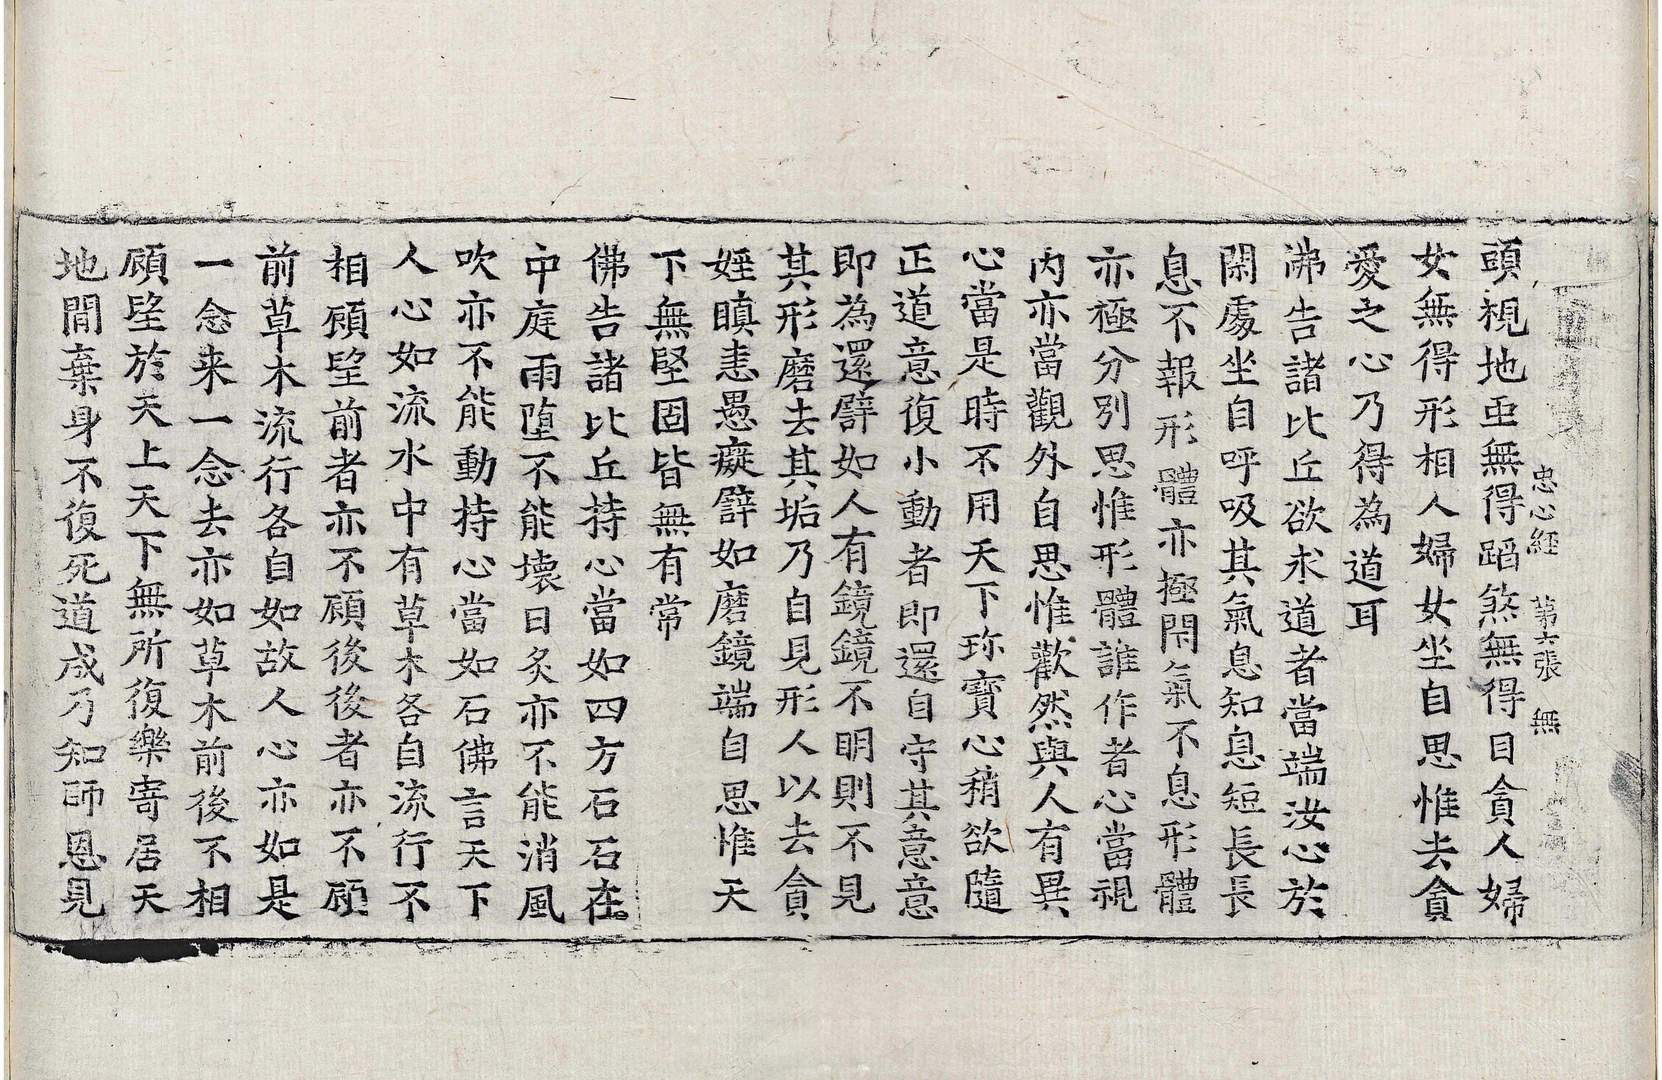 忠心經　第六張　無
頭視地𠀇無得蹈煞無得目貪人婦
女無得形相人婦女坐自思惟去貪
愛之心乃得為道耳
佛告諸比丘欲求道者當端汝心於
閑處坐自呼吸其氣息知息短長長
息不報形體亦極閇氣不息形體
亦極分別思惟形體誰作者心當視
内亦當觀外自思惟歡然與人有異
心當是時不用天下珎寶心稍欲隨
正道意復小動者即還自守其意意
即為還譬如人有鏡鏡不明則不見
其形磨去其垢乃自見形人以去貪
婬瞋恚愚癡譬如磨鏡端自思惟天
下無堅固皆無有常
佛告諸比丘持心當如四方石石在
中庭雨墮不能壞日炙亦不能消風
吹亦不能動持心當如石佛言天下
人心如流水中有草木各自流行不
相顧望前者亦不顧後後者亦不顧
前草木流行各自如故人心亦如是
一念来一念去亦如草木前後不相
顧望於天上天下無所復樂寄居天
地閒棄身不復死道成乃知師恩見